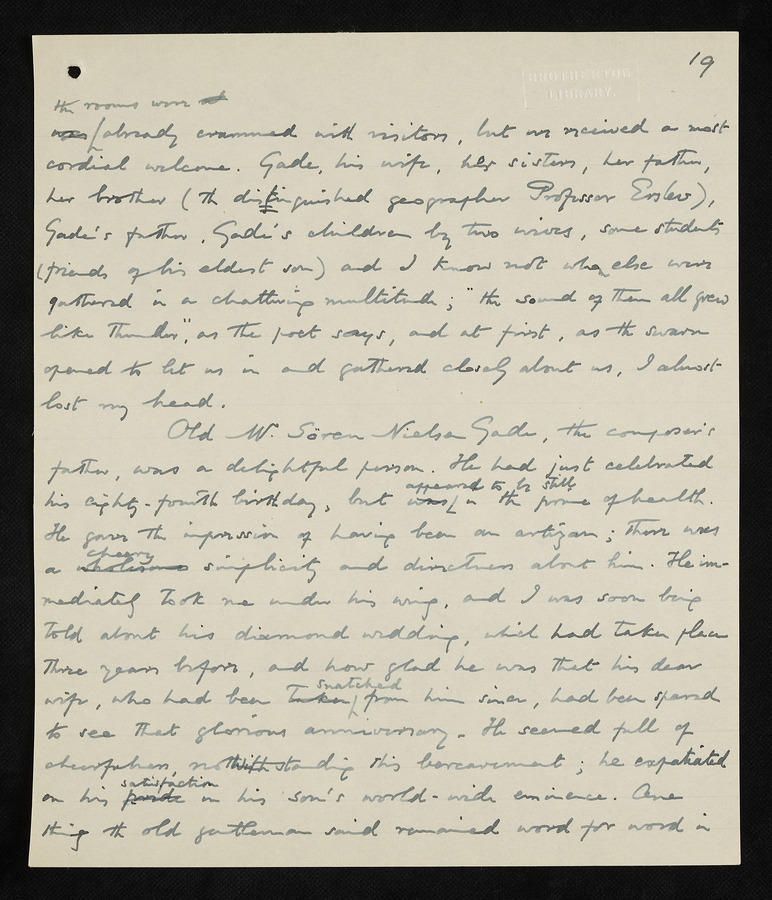 19
BROTHERTON
LIBRARY.
the rooms were
was already crammed with visitors, but we received a most
cordial welcome. Gade, his wife, her sisters, her father,
her brother (the distinguished geographer Professor Erslev),
Gade's father, Gade's children by two wives, some students
(friends of his eldest son) and I know not who else were
gathered in a chattering multitude; "the sound of them all grew
like thunder", as the poet says, and at first, as the swarm
opened to let us in and gathered closely about us, I almost
lost my head.
Old Mr. Sören Nielsen Gade, the composer's
father, was a delightful person. He had just celebrated
his eighty-fourth birthday, but was appeared to be still in the prime of health.
He gave the impression of having been an artizan; there was
a wholesome cheery simplicity and directness about him. He im-
mediately took me under his wing, and I was soon being
told about his diamond wedding, which had taken place
three years before, and how glad he was that his dear
wife, who had been taken snatched from him since, had been spared
to see that glorious anniversary. He seemed full of
cheerfulness, notwithstanding this bereavement; he expatiated
on his pride satisfaction in his son's world-wide eminence. One
thing the old gentleman said remained word for word in